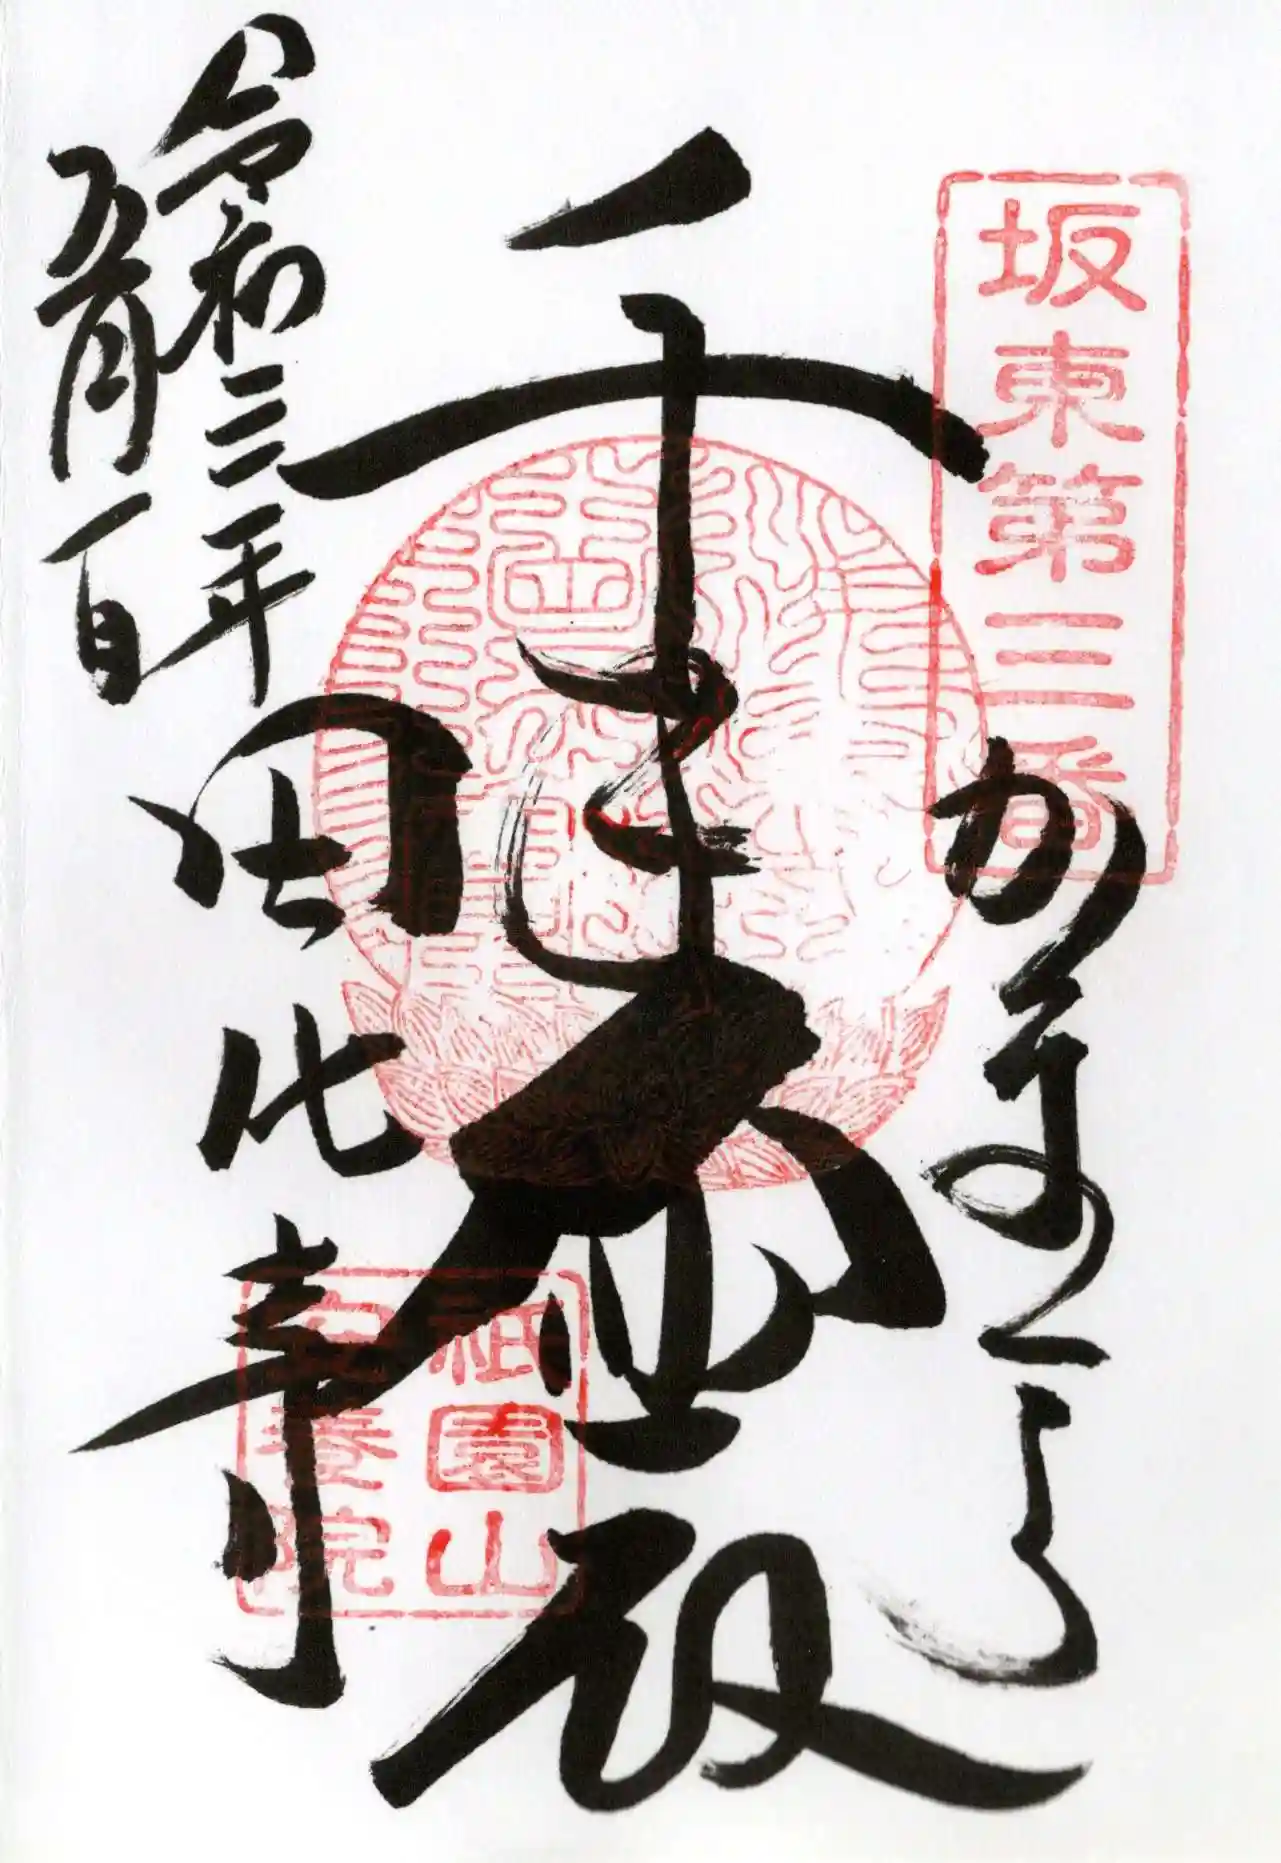 坂東第三番
かまくら
千手大悲殿
令和三年
五月一日
田代寺
祇園山
安養院